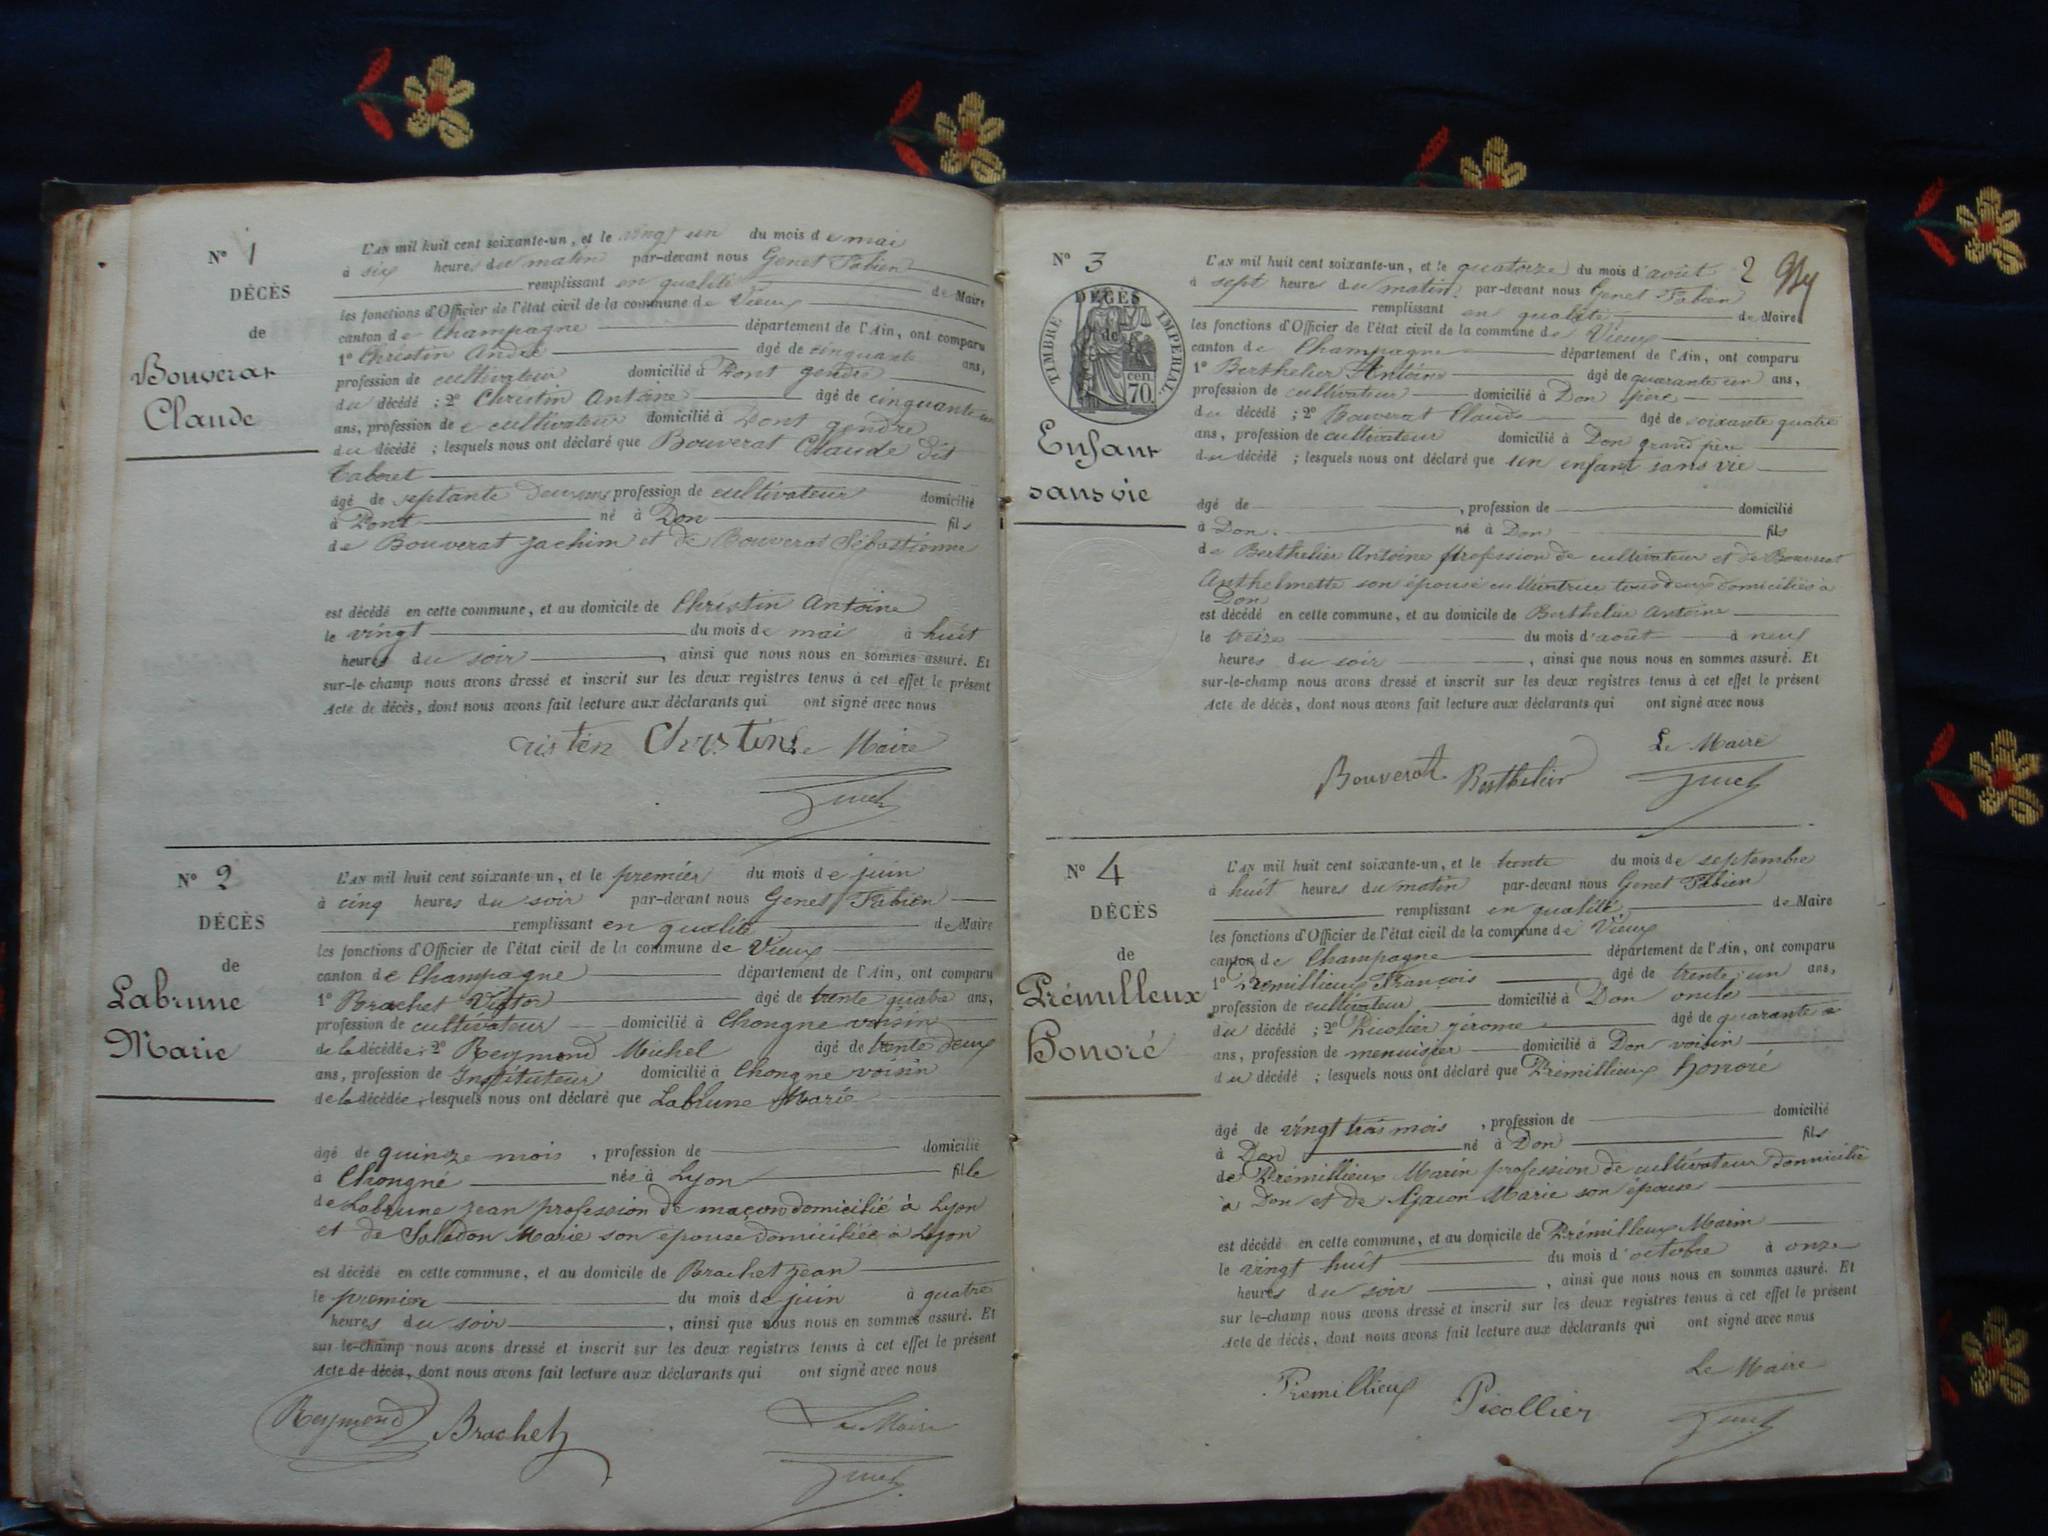 N° 1
DÉCÈS
de
Bouverat
Claude
L'AN mil huit cent soixante-un, et le vingt un du mois de mai
à six heures du matin par-devant nous Genet Fabien
remplissant en qualité de Maire
les fonctions d'Officier de l'état civil de la commune de Vieux
canton de Champagne département de l'Ain, ont comparu
1° Christin André âgé de cinquante ans,
profession de cultivateur domicilié à Pont gendre
du décédé ; 2° Christin Antoine âgé de cinquante un
ans, profession de cultivateur domicilié à Pont gendre
du décédé ; lesquels nous ont déclaré que Bouverat Claude dit
Taboret
âgé de septante deux ans profession de cultivateur domicilié
à Pont né à Don fils
de Bouverat Jachim et de Bouverat Sébastienne
est décédé en cette commune, et au domicile de Christin Antoine
le vingt du mois de mai à huit
heures du soir , ainsi que nous nous en sommes assuré. Et
sur-le-champ nous avons dressé et inscrit sur les deux registres tenus à cet effet le présent
Acte de décès, dont nous avons fait lecture aux déclarants qui ont signé avec nous
Cristin Christin Le Maire
Genet
N° 2
DÉCÈS
de
Labrune
Marie
L'AN mil huit cent soixante-un, et le premier du mois de juin
à cinq heures du soir par-devant nous Genet Fabien
remplissant en qualité de Maire
les fonctions d'Officier de l'état civil de la commune de Vieux
canton de Champagne département de l'Ain, ont comparu
1° Brachet Victor âgé de trente quatre ans,
profession de cultivateur domicilié à Chongne voisin
de la décédée ; 2° Reymond Michel âgé de trente deux
ans, profession de Instituteur domicilié à Chongne voisin
de la décédée ; lesquels nous ont déclaré que Labrune Marie
âgé de quinze mois , profession de domicilié
à Chongne née à Lyon fille
de Labrune jean profession de maçon domicilié à Lyon
et de Salladon Marie son épouse domiciliée à Lyon
est décédé en cette commune, et au domicile de Brachet jean
le premier du mois de juin à quatre
heures du soir , ainsi que nous nous en sommes assuré. Et
sur le-champ nous avons dressé et inscrit sur les deux registres tenus à cet effet le présent
Acte de décès, dont nous avons fait lecture aux déclarants qui ont signé avec nous
Reymond Brachet Le Maire
Genet
2
N° 3
DÉCÈS
de
TIMBRE IMPERIAL
70 cen.
Enfant
sans vie
L'AN mil huit cent soixante-un, et le quatorze du mois d'août
à sept heures du matin par-devant nous Genet Fabien
remplissant en qualité de Maire
les fonctions d'Officier de l'état civil de la commune de Vieux
canton de Champagne département de l'Ain, ont comparu
1° Berthelier Antoine âgé de quarante un ans,
profession de cultivateur domicilié à Don père
du décédé ; 2° Bouverat Claude âgé de soixante quatre
ans, profession de cultivateur domicilié à Don grand père
du décédé ; lesquels nous ont déclaré que un enfant sans vie
âgé de , profession de domicilié
à Don né à Don fils
de Berthelier Antoine profession de cultivateur et de Bouverat
Anthelmette son épouse cultivatrice tous deux domiciliés à
Don
est décédé en cette commune, et au domicile de Berthelier Antoine
le treize du mois d'août à neuf
heures du soir , ainsi que nous nous en sommes assuré. Et
sur-le-champ nous avons dressé et inscrit sur les deux registres tenus à cet effet le présent
Acte de décès, dont nous avons fait lecture aux déclarants qui ont signé avec nous
Le Maire
Bouverat Berthelier Genet
N° 4
DÉCÈS
de
Prémilleux
Honoré
L'AN mil huit cent soixante-un, et le trente du mois de septembre
à huit heures du matin par-devant nous Genet Fabien
remplissant en qualité de Maire
les fonctions d'Officier de l'état civil de la commune de Vieux
canton de Champagne département de l'Ain, ont comparu
1° Prémillieux François âgé de trente un ans,
profession de cultivateur domicilié à Don oncle
du décédé ; 2° Picolier jérome âgé de quarante
ans, profession de menuisier domicilié à Don voisin
du décédé ; lesquels nous ont déclaré que Prémillieux honoré
âgé de vingt trois mois , profession de domicilié
à Don né à Don fils
de Prémillieux Marin profession de cultivateur domicilié
à Don et de Marie son épouse
est décédé en cette commune, et au domicile de Prémilleux Marin
le vingt huit du mois d'octobre à onze
heures du soir , ainsi que nous nous en sommes assuré. Et
sur le-champ nous avons dressé et inscrit sur les deux registres tenus à cet effet le présent
Acte de décès, dont nous avons fait lecture aux déclarants qui ont signé avec nous
Le Maire
Premillieux Picollier Genet